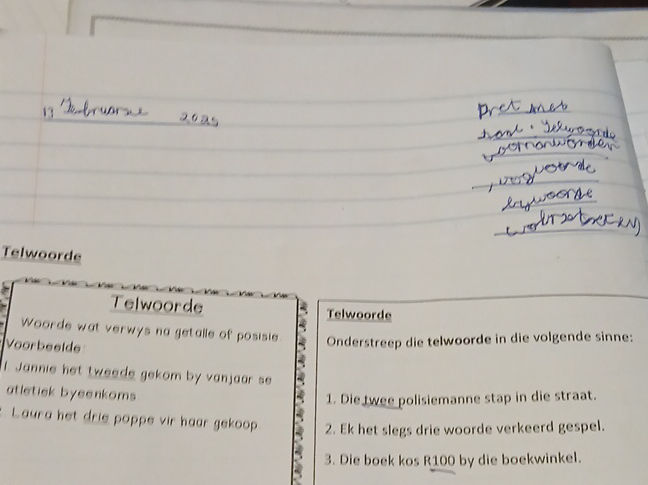 Februarie 2025
Pret met
taal: Telwoorde
voornaamwoorden
, voegwoorde
bywoorde
Telwoorde
Telwoorde
Woorde wat verwys na getalle of posisie.
Voorbeelde:
1. Jannie het tweede gekom by vanjaar se
atletiek byeenkoms
Laura het drie poppe vir haar gekoop
Telwoorde
Onderstreep die telwoorde in die volgende sinne:
1. Die twee polisiemanne stap in die straat.
2. Ek het slegs drie woorde verkeerd gespel.
3. Die boek kos R100 by die boekwinkel.